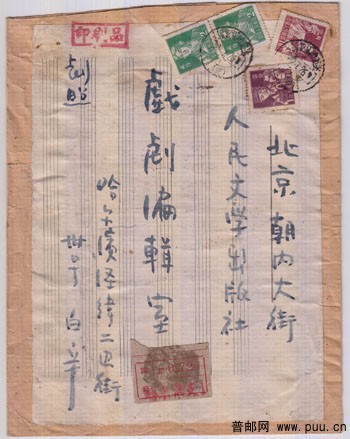 印刷品
北京 朝内大街
人民文学出版社
戲劇编輯室
剧照
哈尔濱经緯二四街
白
普邮网
www.puu.cn